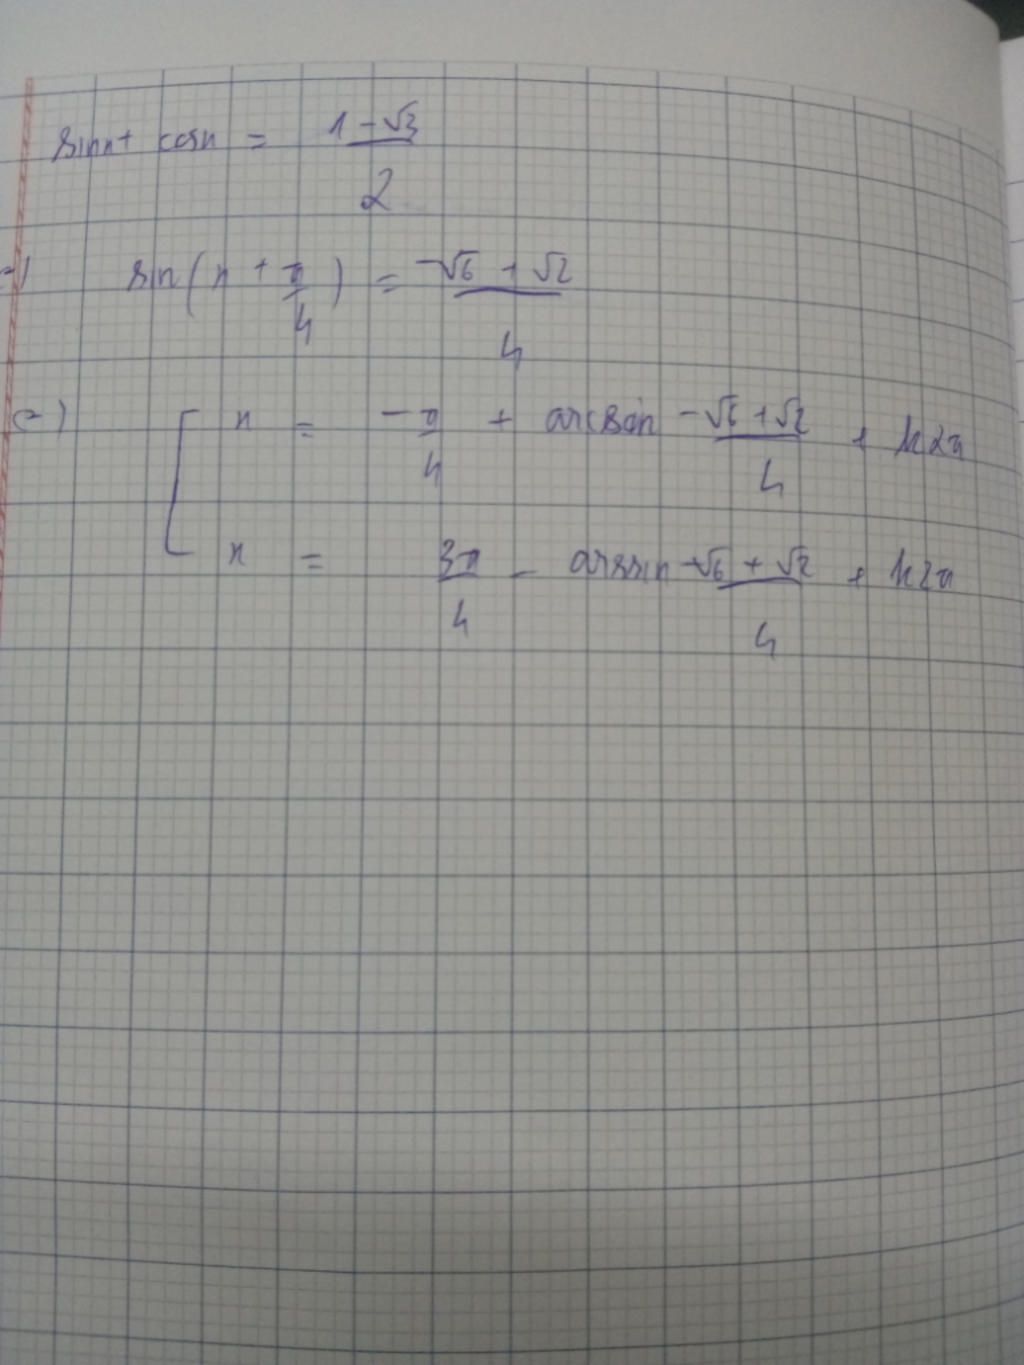 sinx + cosx = \frac{1 - √3}{2}
<=> sin(x + \frac{π}{4}) = \frac{-√6 + √2}{4}
<=> [ x = -\frac{π}{4} + arcsin \frac{-√6 + √2}{4} + k2π
x = \frac{3π}{4} - arcsin \frac{-√6 + √2}{4} + k2π